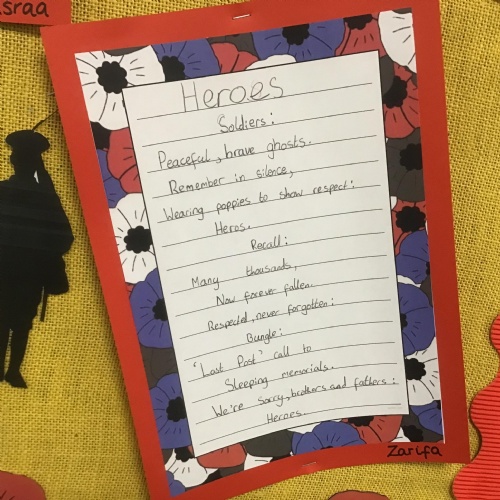 sraa
Heroes
Soldiers:
Peaceful, brave ghosts.
Remember in silence,
Wearing poppies to show respect:
Heros.
Recall:
Many thousands,
Now forever fallen.
Respected, never forgotten:
Bungle:
'Last Post' call to
Sleeping memorials.
We're sorry, brothers and fathers:
Heroes.
Zarifa